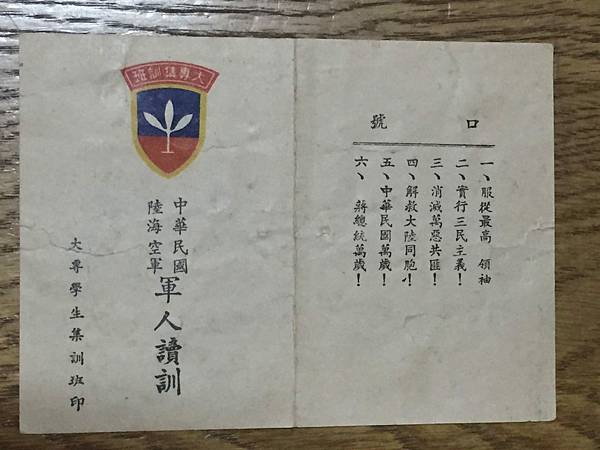 口號
一、服從最高 領袖
二、實行三民主義！
三、消滅萬惡共匪！
四、解救大陸同胞！
五、中華民國萬歲！
六、 蔣總統萬歲！
大專集訓班
中華民國
陸海空軍
軍人讀訓
大專學生集訓班印